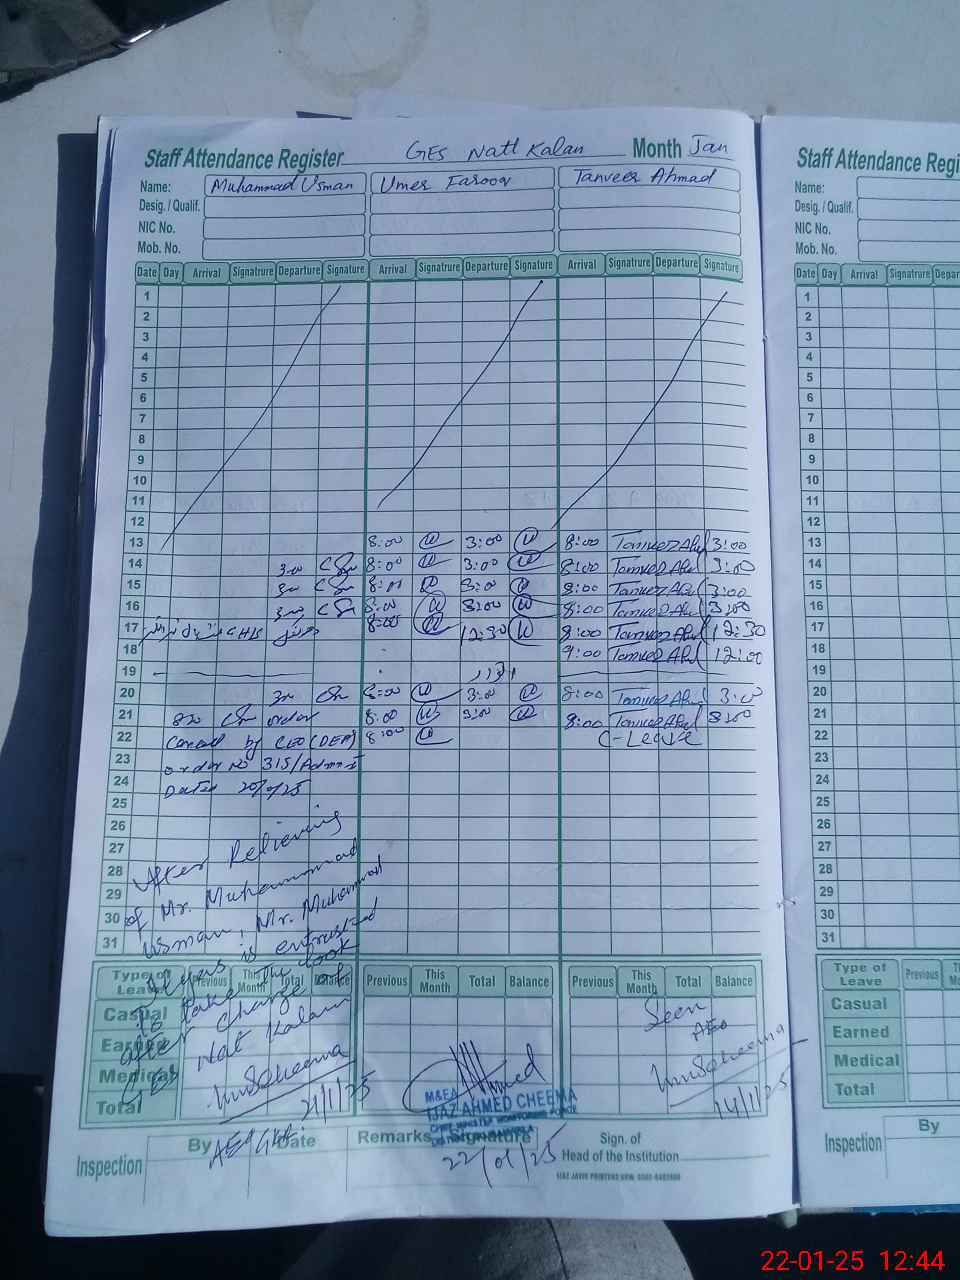 Staff Attendance Register GES Natt Kalan Month Jan
Name: Muhammad Usman Umer Farooq Tanveer Ahmad
Desig. / Qualif.
NIC No.
Mob. No.
Date Day Arrival Signatrure Departure Signature Arrival Signatrure Departure Signature Arrival Signatrure Departure Signature
1
2
3
4
5
6
7
8
9
10
11
12
13 8:00 3:00 8:00 Tanveer Ahd 3:00
14 3:00 8:00 3:00 8:00 Tanveer Ahd 3:00
15 8:00 3:00 8:00 Tanveer Ahd 3:00
16 8:00 3:00 8:00 Tanveer Ahd 3:00
17 8:00 12:30 8:00 Tanveer Ahd 12:30
18 9:00 Tanveer Ahd 12:00
19 اتوار
20 8:00 3:00 8:00 Tanveer Ahd 3:00
21 order 8:00 3:00 8:00 Tanveer Ahd 3:00
22 by CEO (DEA) 8:00 C-Leave
23 order No 315/Admn
24 Dated 20/1/25
25
26
27
28
29
30
31
After Relieving
of Mr. Muhammad
Usman, Mr. Muhammad
is entrusted
to take the look
after charge of
GES Nat Kalan
21/1/25
AEO
Type of Leave Previous This Month Total Balance Previous This Month Total Balance Previous This Month Total Balance
Casual
Earned
Medical
Total
Seen
AEO
14/1/25
M&EA
IJAZ AHMED CHEEMA
22/01/25
Inspection By Date Remarks Signature Sign. of
Head of the Institution
Staff Attendance Regi
Name:
Desig. / Qualif.
NIC No.
Mob. No.
Date Day Arrival Signatrure Depar
1
2
3
4
5
6
7
8
9
10
11
12
13
14
15
16
17
18
19
20
21
22
23
24
25
26
27
28
29
30
31
Type of Leave Previous
Casual
Earned
Medical
Total
Inspection By
22-01-25 12:44